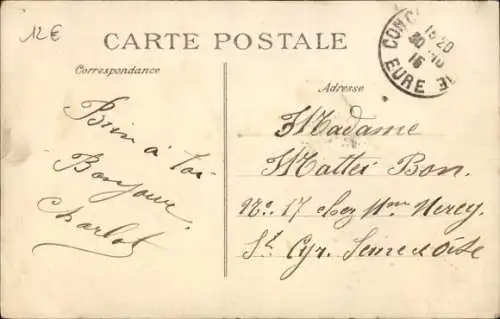 12€
CARTE POSTALE
Correspondance
Adresse
CONC
15 20
30 10
16
EURE
Bien à toi
Bonjour.
Charlot
Madame
Mattei Bon.
No. 17 chez Mme Nerey.
St. Cyr. Seine et Oise